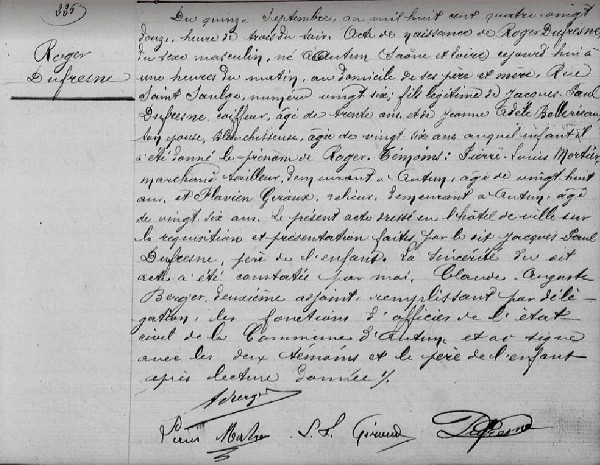 225
Roger
Dufresne
Du quinze Septembre, an mil huit cent quatre vingt
douze, heure de trois du soir. Acte de naissance de Roger Dufresne,
du sexe masculin, né à Autun (Saône et Loire) cejourd'hui à
une heures du matin, au domicile de ses père et mère, Rue
Saint Saulge, numéro vingt six, fils légitime de Jacques Paul
Dufresne, coiffeur, âgé de trente ans, et de Jeanne Adèle
son épouse, Blanchisseuse, âgée de vingt six ans auquel enfant il
a été donné le prénom de Roger. Témoins: Pierre Louis Mortier,
marchand tailleur, demeurant à Autun, âgé de vingt huit
ans, et Flavien Giraux, relieur, demeurant à Autun, âgé
de vingt six ans. Le présent acte dressé en l'hôtel de ville sur
la requisition et présentation faites par le dit Jacques Paul
Dufresne, père de l'enfant. La sincérité du dit
acte a été constatée par moi, Claude August
Berger, deuxième adjoint, remplissant par délé-
gation, les fonctions d'officier de l'état
civil de la Commune d'Autun et ai signé
avec les deux témoins et le père de l'enfant
après lecture donnée ./.
Dufresne